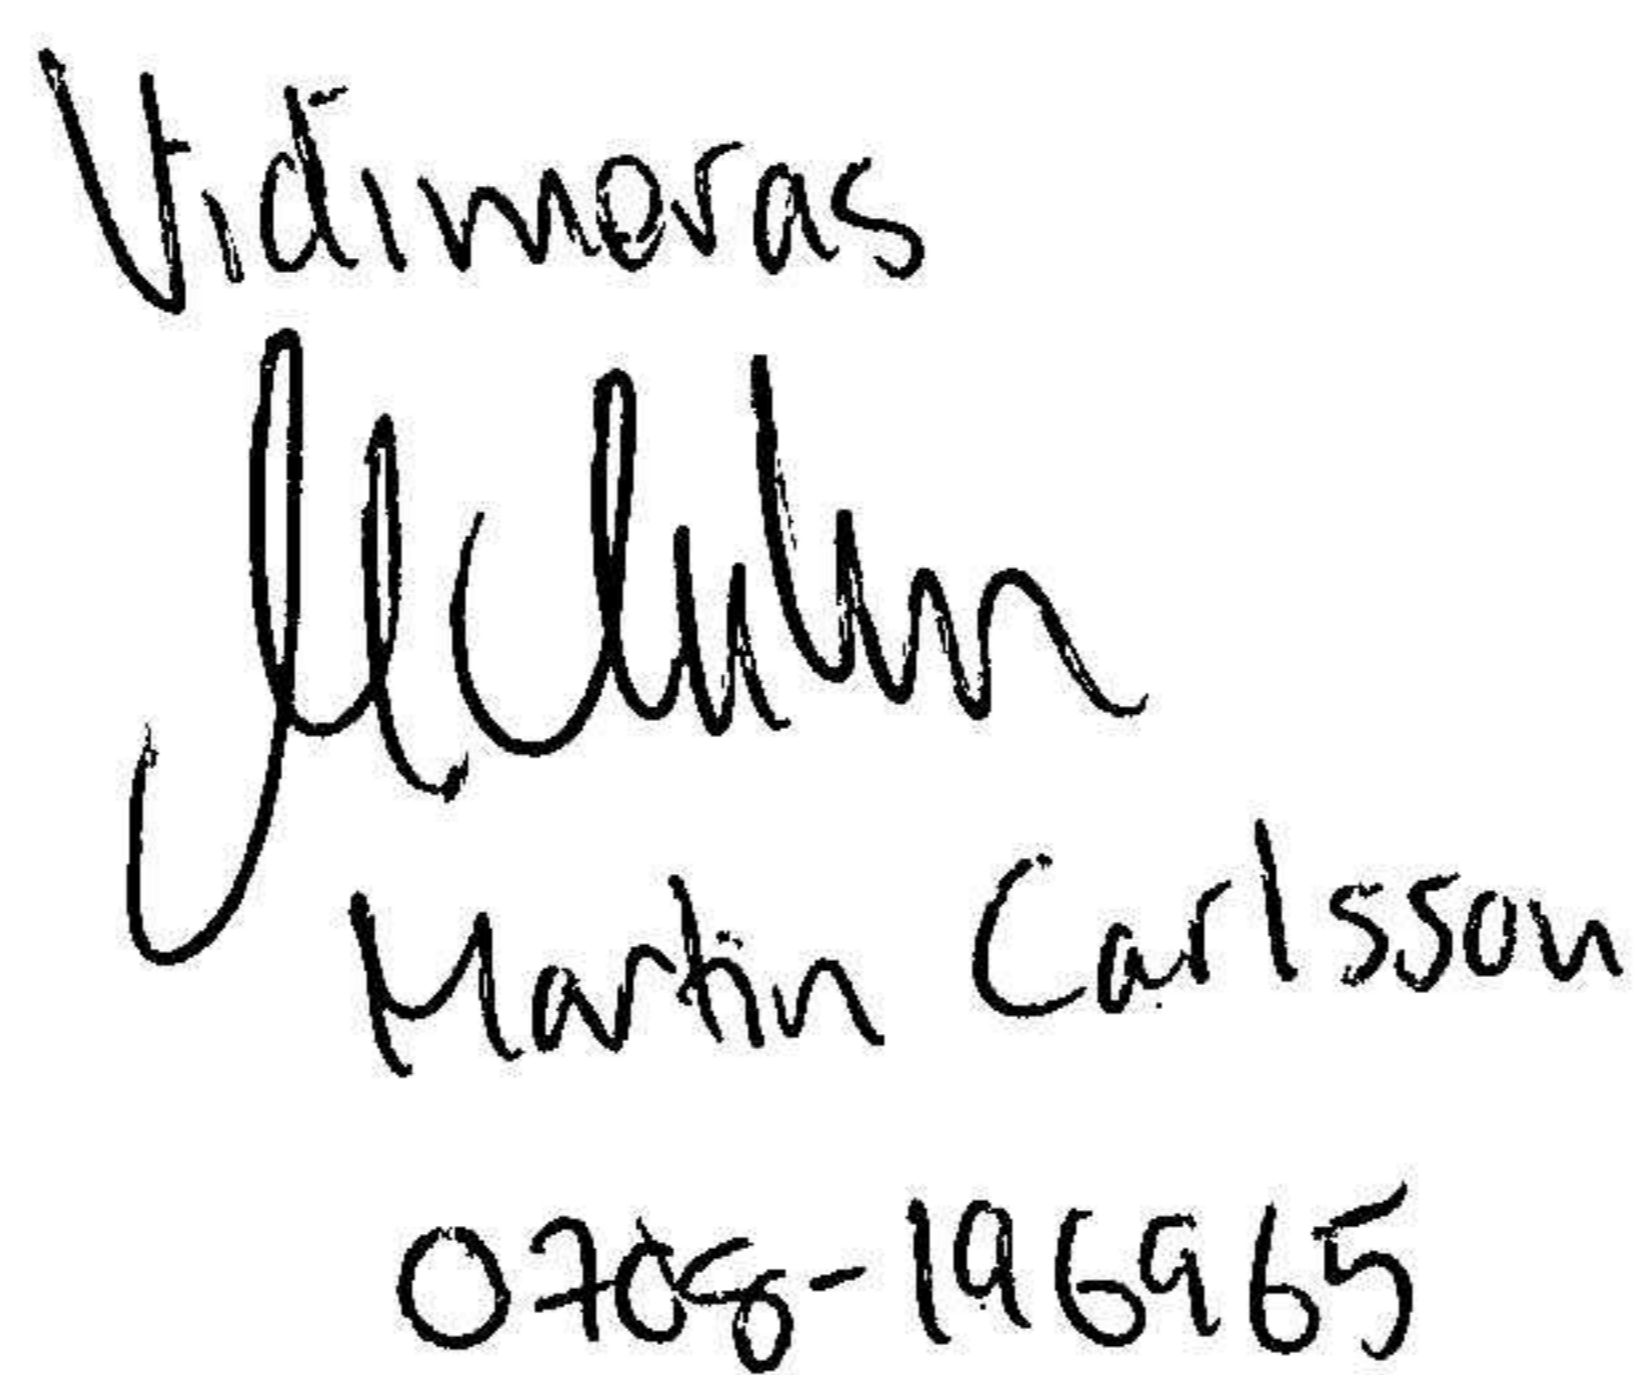 Vidimeras
Martin Carlsson
0708-196965